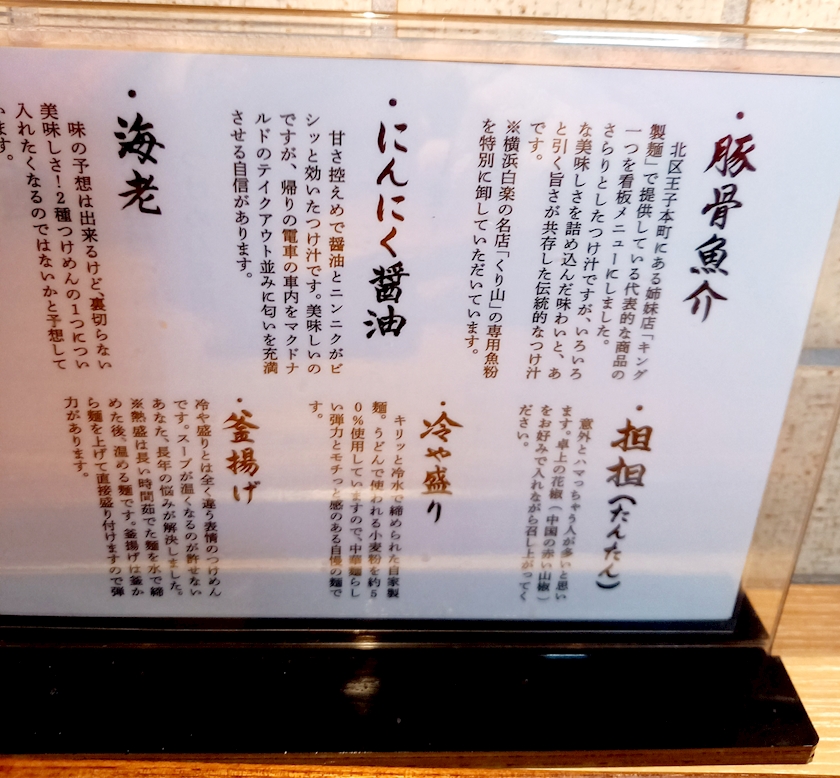 ・豚骨魚介
北区王子本町にある姉妹店「キング
製麺」で提供している代表的な商品の
一つを看板メニューにしました。
さらりとしたつけ汁ですが、いろいろ
な美味しさを詰め込んだ味わいと、あ
と引く旨さが共存した伝統的なつけ汁
です。
※横浜白楽の名店「くり山」の専用魚粉
を特別に卸していただいています。
・にんにく醤油
甘さ控えめで醤油とニンニクがビ
シッと効いたつけ汁です。美味しいの
ですが、帰りの電車の車内をマクドナ
ルドのテイクアウト並みに匂いを充満
させる自信があります。
・海老
味の予想は出来るけど、裏切らない
美味しさ!2種つけめんの1つについ
入れたくなるのではないかと予想して
います。
・担担(たんたん)
意外とハマっちゃう人が多いと思い
ます。卓上の花椒(中国の赤い山椒)
をお好みで入れながら召し上がってく
ださい。
・冷や盛り
キリッと冷水で締められた自家製
麺。うどんで使われる小麦粉を約5
0%使用していますので、中華麺らし
い弾力とモチっと感のある自慢の麺で
す。
・釜揚げ
冷や盛りとは全く違う表情のつけめん
です。スープが温くなるのが許せない
あなた、長年の悩みが解決しました。
※熱盛は長い時間茹でた麺を水で締
めた後、温める麺です。釜揚げは釜か
ら麺を上げて直接盛り付けますので弾
力があります。